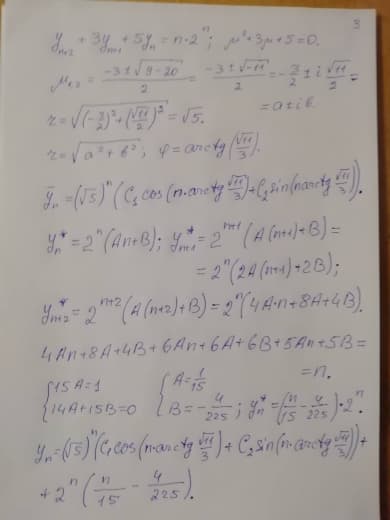 3
yₙ₊₂ + 3yₙ₊₁ + 5yₙ = n·2ⁿ; μ² + 3μ + 5 = 0.
μ₁,₂ = (-3 ± √(9-20))/2 = (-3 ± √-11)/2 = -3/2 ± i √11/2 =
= a ± i b.
r = √((-3/2)² + (√11/2)²) = √5.
r = √(a² + b²); φ = arctg(√11/3).
ȳₙ = (√5)ⁿ (C₁ cos(n·arctg √11/3) + C₂ sin(n arctg √11/3)).
yₙ* = 2ⁿ(An+B); y*ₙ₊₁ = 2ⁿ⁺¹(A(n+1)+B) =
= 2ⁿ(2A(n+1)+2B);
y*ₙ₊₂ = 2ⁿ⁺²(A(n+2)+B) = 2ⁿ(4A·n+8A+4B).
4An+8A+4B+6An+6A+6B+5An+5B =
= n.
{15A=1 {A=1/15
{14A+15B=0 {B=-4/225; yₙ* = (n/15 - 4/225)·2ⁿ.
yₙ = (√5)ⁿ (C₁ cos(n·arctg √11/3) + C₂ sin(n·arctg √11/3)) +
+ 2ⁿ (n/15 - 4/225).